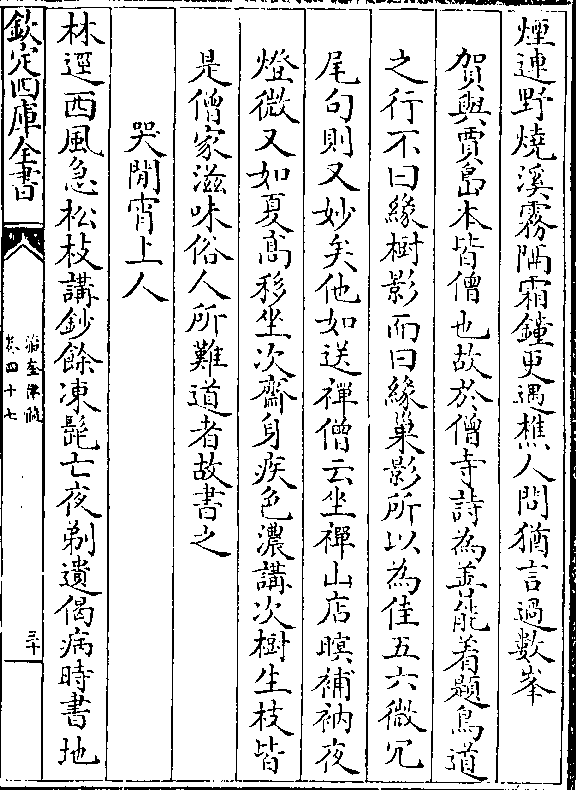 煙連野燒溪霧隔霜鐘更遇樵人問猶言過數峯
賀與賈島本皆僧也故於僧寺詩為善能着題鳥道
之行不曰緣樹影而曰緣巢影所以為佳五六微冗
尾句則又妙矣他如送禪僧云坐禪山店暝補衲夜
燈微又如夏髙移坐次齋身疾色濃講次樹生枝皆
是僧家滋味俗人所難道者故書之
哭閒霄上人
林逕西風急松枝講鈔餘凍髭亡夜剃遺偈病時書地
欽定四庫全書
瀛奎律髓
卷四十七
三十